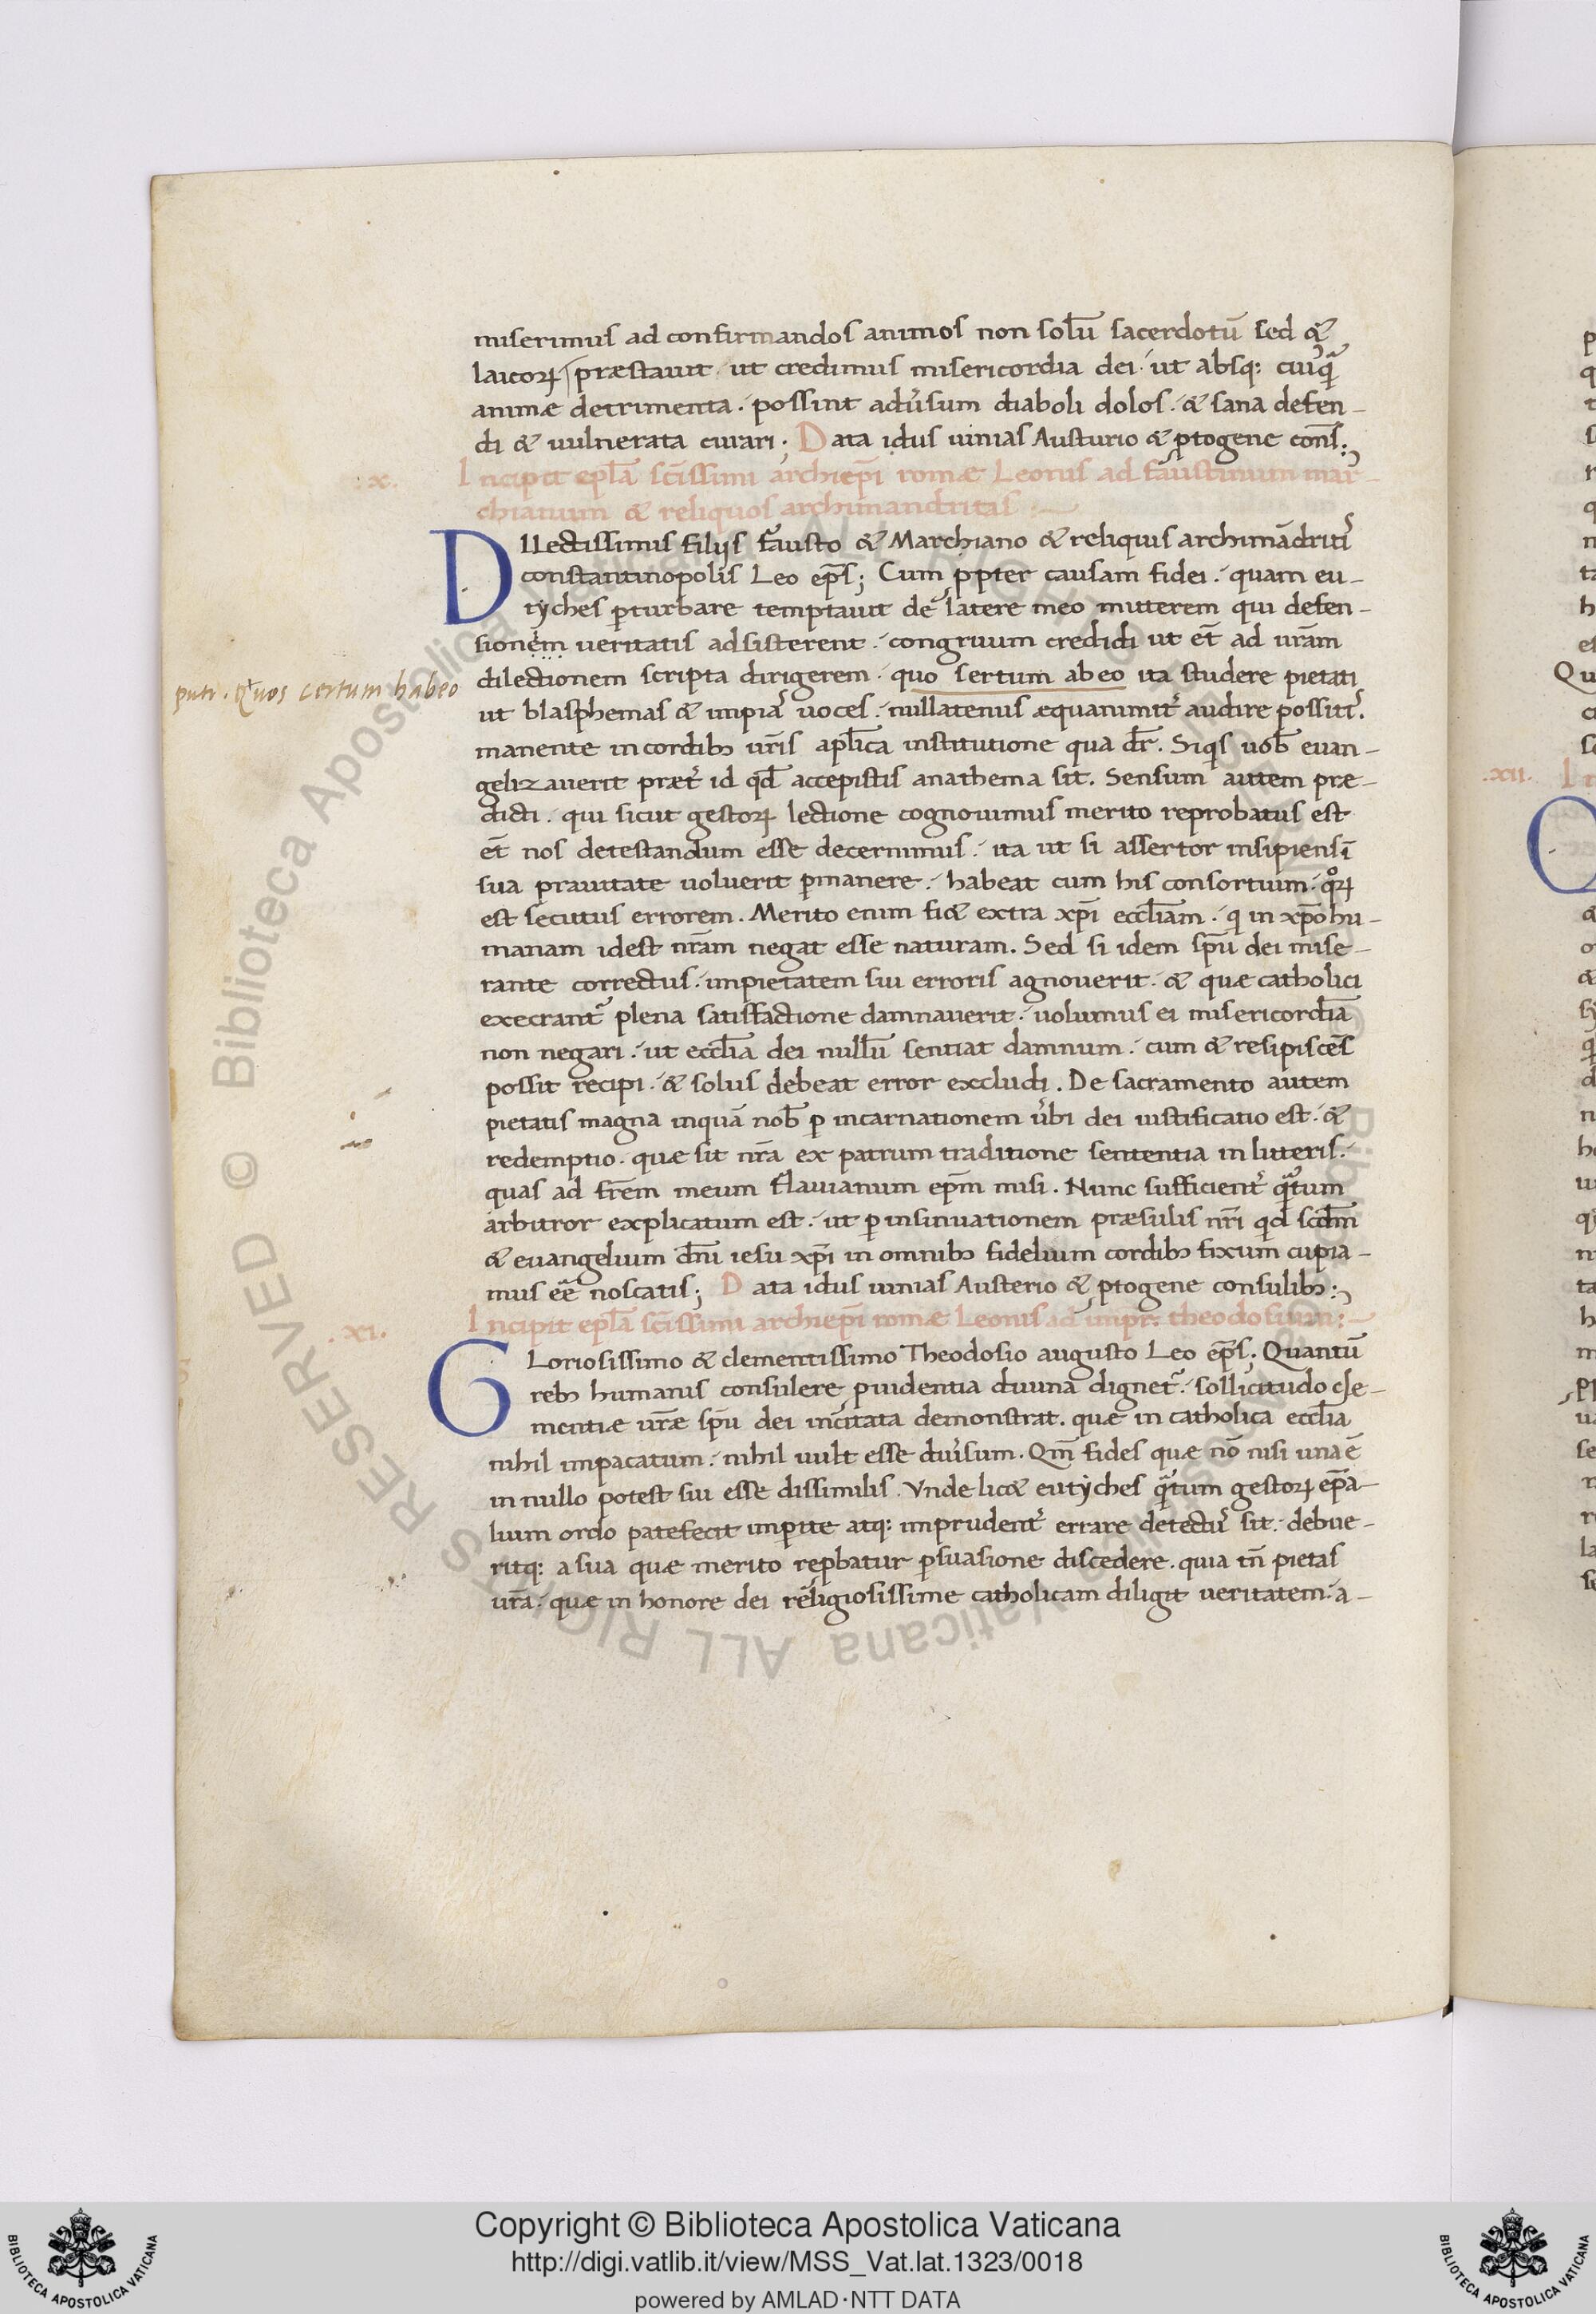 miserimus ad confirmandos animos non solū sacerdotū sed &
laicoꝝ præstauit · ut credimus misericordia dei · ut absq: cuiꝗ̃
animæ detrimenta · possint aduͥsum diaboli dolos · & sana defen-
di & uulnerata curari ; Data idus iunias Austurio & ꝓtogene cons̄ :
.x. Incipit epl̄a sc̄issimi archiep̄i romæ Leonis ad faustinum mar-
chianum & reliquos archimandritas :
DIlectissimis filijs fausto & Marchiano & reliquis archimādritis
constantinopolis Leo ep̄s ; Cum ꝓpter causam fidei · quam eu-
tyches ꝑturbare temptauit de latere meo mitterem qui defen-
sionem ueritatis adsisterent · congruum credidi ut et̄ ad ur̄am
dilectionem scripta dirigerem · quo sertum abeo ita studere pietati
putr . Quos certum habeo
ut blasphemas & impias uoces · nullatenus æquanimit̾ audire possitis.
manente in cordibꝫ ur̄is apl̄ica institutione qua dr̄. Siqs uob̄ euan-
gelizauerit præt̾ id qd̄ accepistis anathema sit. Sensum autem præ-
dicti . qui sicut gestoꝝ lectione cognouimus merito reprobatus est
et̄ nos detestandum esse decernimus · ita ut si assertor insipiens ī
sua prauitate uoluerit ꝑmanere · habeat cum his consortium · qͦꝝ
est secutus errorem . Merito enim fi& extra xp̄i eccl̄iam · q in xp̄o hu-
manam idest nr̄am negat esse naturam. Sed si idem sp̄u dei mise-
rante correctus · impietatem sui erroris agnouerit · & quæ catholici
execrant᷑ plena satisfactione damnauerit · uolumus ei misericordiā
non negari · ut eccl̄ia dei nullū sentiat damnum · cum & resipiscēs
possit recipi · & solus debeat error excludi . De sacramento autem
pietatis magna inquā nob̄ ꝑ incarnationem uͥbi dei iustificatio est · &
redemptio · quæ sit nr̄a ex patrum traditione sententia in litteris ·
quas ad fr̄em meum flauianum ep̄m misi . Nunc sufficient̾ ꝗͣtum
arbitror explicatum est · ut ꝑ insinuationem præsulis nr̄i qid scd̄m
& euangelium dn̄i iesu xp̄i in omnibꝫ fidelium cordibꝫ fixum cupia-
mus eē noscatis ; Data idus iunias Austerio & ꝓtogene consulibꝫ :
.xi. Incipit epl̄a sc̄issimi archiep̄i romæ Leonis ad impr: theodosium :
GLoriosissimo & clementissimo Theodosio augusto Leo ep̄s ; Quantū
rebꝫ humanis consulere ꝓuidentia diuina dignet᷑ · sollicitudo cle-
mentiæ ur̄æ sp̄u dei incitata demonstrat . quæ in catholica eccl̄ia
nihil impacatum · nihil uult esse diuͥsum . Qm̄ fides quæ nō nisi una ē
in nullo potest sui esse dissimilis . Vnde lic& eutyches ꝗͣtum gestoꝝ ep̄a-
lium ordo patefecit imꝑite atq: imprudent̾ errare detectus sit · debue-
ritq: a sua quæ merito reꝓbatur ꝑsuasione discedere . quia tn̄ pietas
ur̄a · quæ in honore dei religiosissime catholicam diligit ueritatem · a-
.xii.
Copyright © Biblioteca Apostolica Vaticana
http://digi.vatlib.it/view/MSS_Vat.lat.1323/0018
powered by AMLAD·NTT DATA
BIBLIOTECA APOSTOLICA VATICANA
BIBLIOTECA APOSTOLICA VATICANA
© Biblioteca Apostolica Vaticana ALL RIGHTS RESERVED